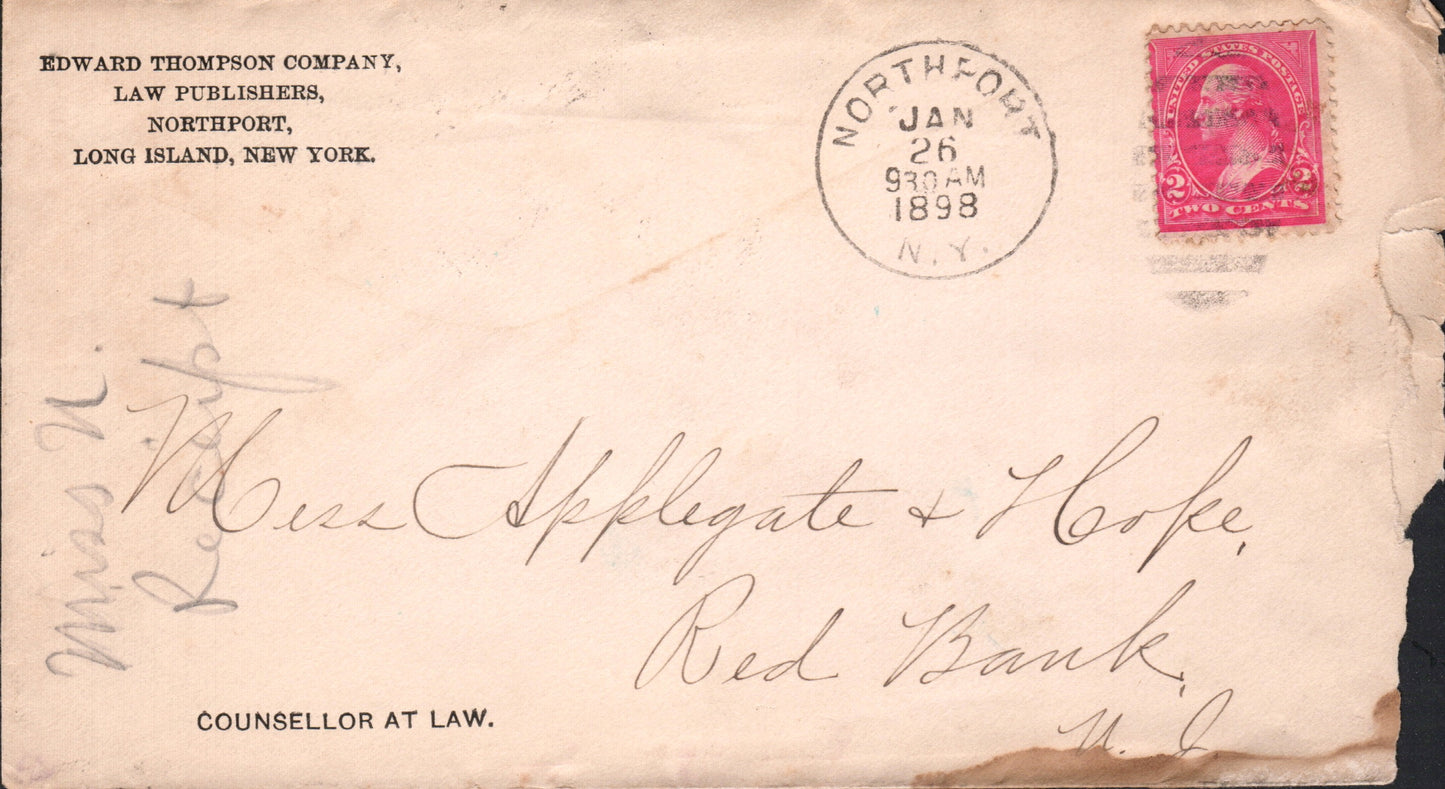 EDWARD THOMPSON COMPANY,
LAW PUBLISHERS,
NORTHPORT,
LONG ISLAND, NEW YORK.
NORTHPORT
JAN
26
930 AM
1898
N.Y.
UNITED STATES POSTAGE
2 2
TWO CENTS
Miss N.
Receipt
Mess Applegate & Hope,
Red Bank,
N. J.
COUNSELLOR AT LAW.